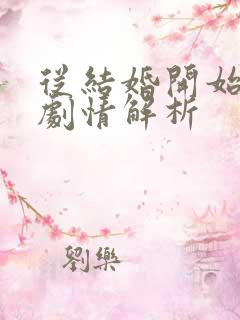 從結婚開始
劇情解析
劉樂